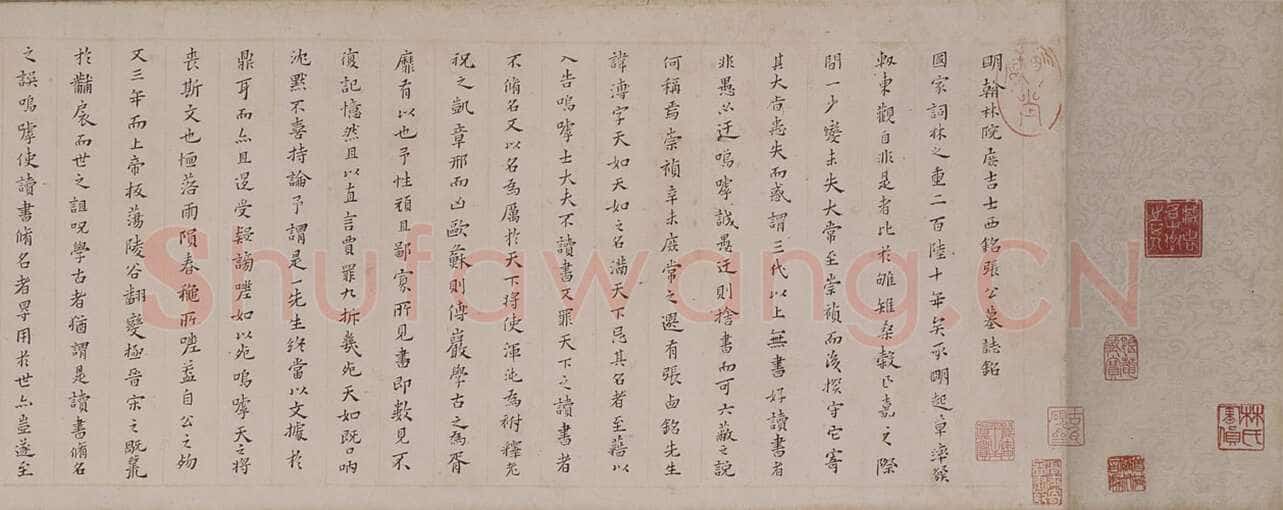 明翰林院庶吉士西銘張公墓誌銘
國家詞林之重二百陸十年矣承明起草
東觀自非是者比於雊雉桑穀正嘉之際
間一少變未失大常至崇禎而後揆守它
其大旨患失而惑謂三代以上無書好讀書者
非愚亦迂嗚嘑誠愚迂則捨書而可六蔽之說
何稱焉崇禎辛未庶常之選有張西銘先生
諱溥字天如天如之名滿天下忌其名者至藉以
入告嗚嘑士大夫不讀書又罪天下之讀書者
不脩名又以名為厲於天下將使渾沌為祔
祝之凱章邪而凶歐蘇則傅巖學古之為胥
靡有以也予性頑且鄙寡所見書即數見不
復記憶然且以直言賈罪九折幾死天如既口吶
沈默不喜持論予謂是一先生終當以文據於
鼎耳而亦且遝受疑謗嗟如以死嗚嘑天之將
喪斯文也恆落雨隕春穐所嗟蓋自公之歾
又三年而上帝板蕩陵谷翻變極晉宋之既
於黼扆而世之詛呪學古者猶謂是讀書脩名
之誤嗚嘑使讀書脩名者畢用於世亦豈遂至
Shufawang.CN